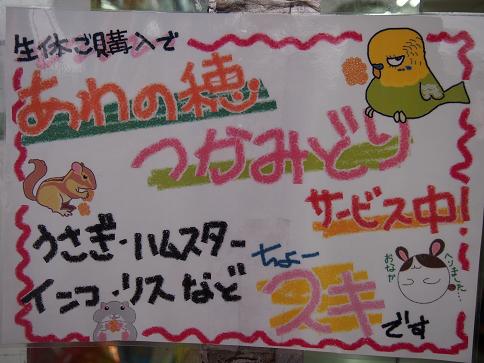 生体ご購入で
あわの穂
つかみどり
サービス中!
うさぎ・ハムスター
インコ・リスなど
ちょー
スキです
おなか
へりました…